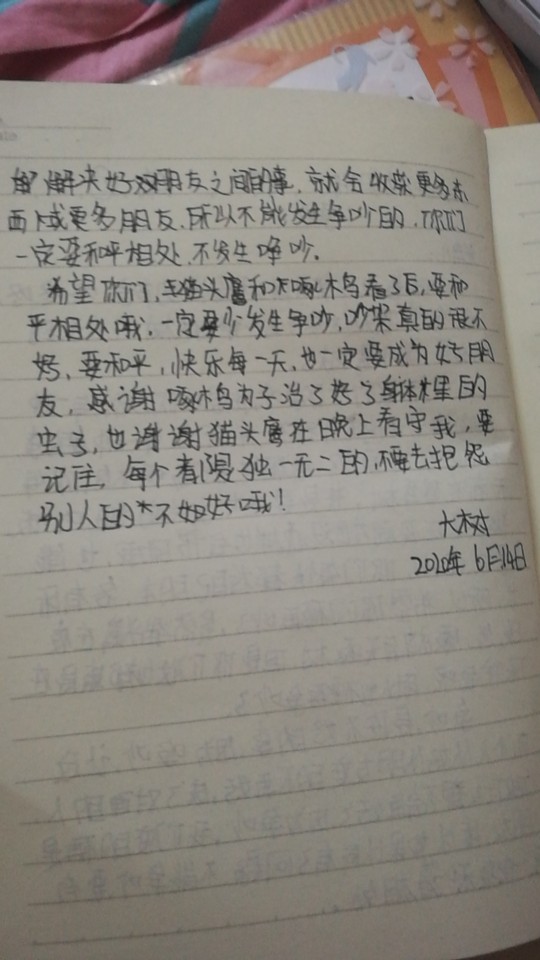 解决好对朋友之间的事，就会收获更多东
西下或更多朋友，所以不能发生争吵的，你们
一定要和平相处，不发生争吵。
希望你们，猫头鹰和啄木鸟看了后，要和
平相处哦，一定要少发生争吵，吵架真的很不
好，要和平，快乐每一天，也一定要成为好朋
友，感谢啄木鸟为子治了好了身体里的
虫子，也谢谢猫头鹰在日晚上看守我，要
记住，每个都是独一无二的，不要去抱怨
别人的*不如好哦！
大树
2020年6月14日